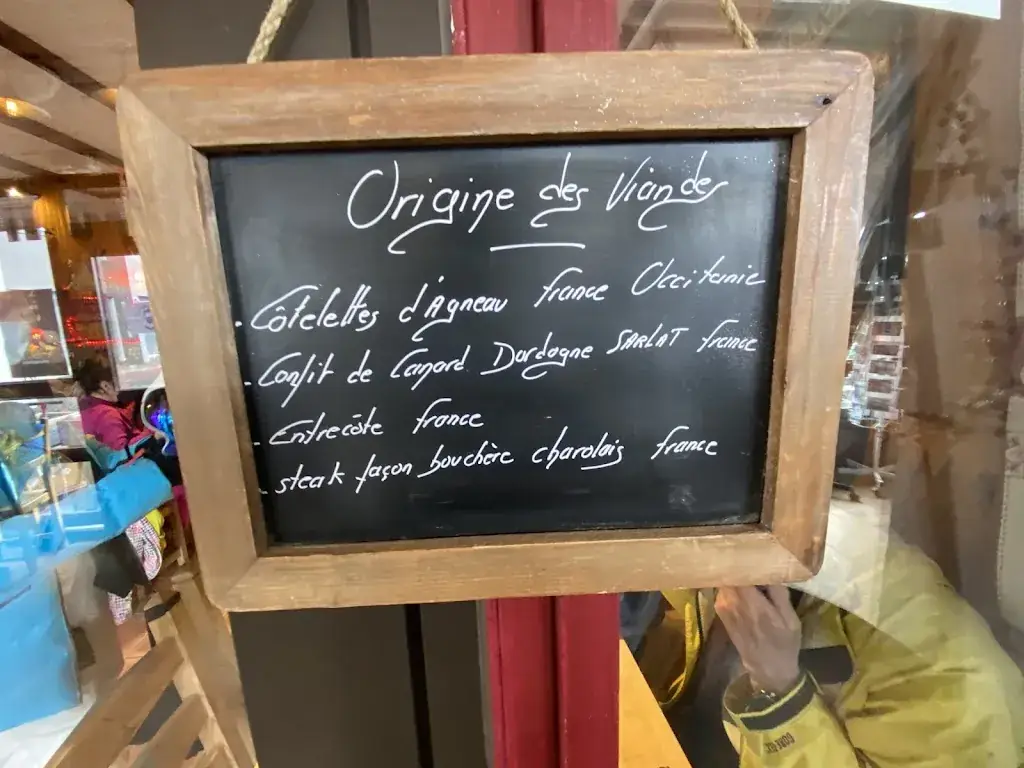 Origine des Viandes
- Côtelettes d'Agneau france Occitanie
- Confit de Canard Dordogne SARLAT france
- Entrecôte france
- steak façon bouchère charolais france
GORE-TEX